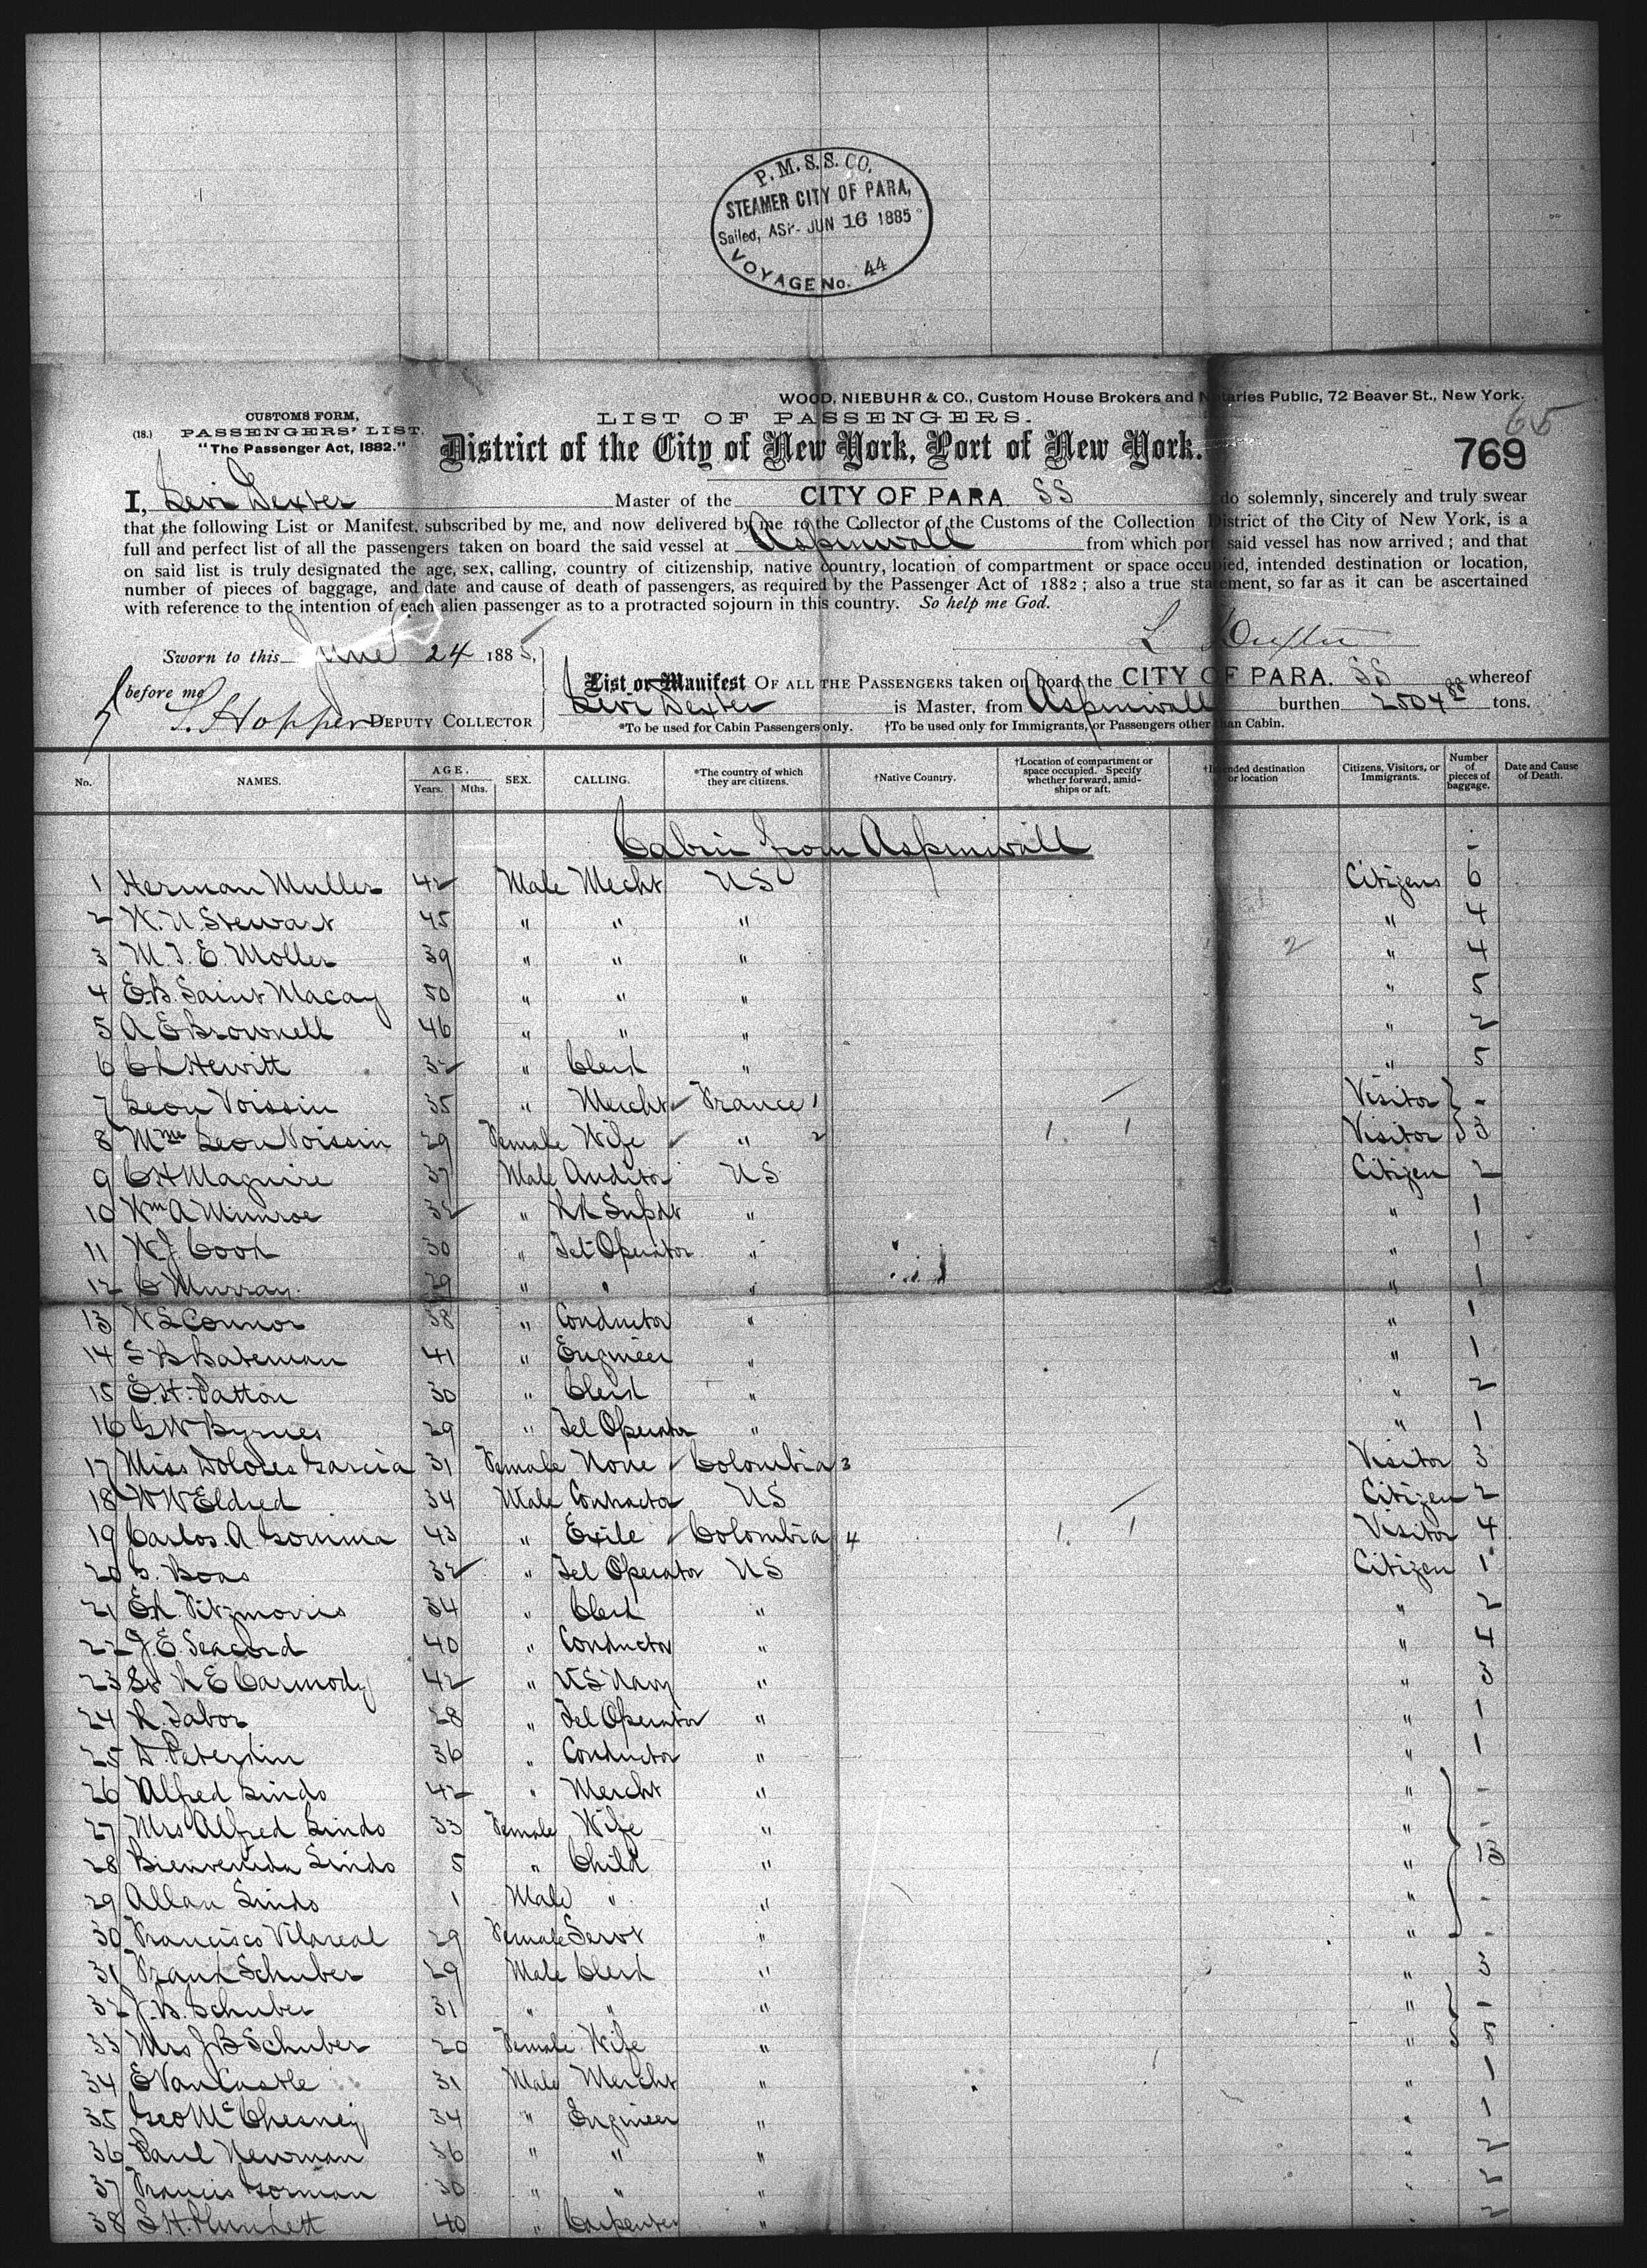 P. M. S. S. CO.
STEAMER CITY OF PARA,
Sailed, ASP- JUN 16 1885
VOYAGE No. 44
WOOD, NIEBUHR & CO., Custom House Brokers and Notaries Public, 72 Beaver St., New York.
65
CUSTOMS FORM,
LIST OF PASSENGERS.
(18.) PASSENGERS' LIST.
"The Passenger Act, 1882."
District of the City of New York, Port of New York.
769
I, Levi Dexter Master of the CITY OF PARA. SS do solemnly, sincerely and truly swear
that the following List or Manifest, subscribed by me, and now delivered by me to the Collector of the Customs of the Collection District of the City of New York, is a
full and perfect list of all the passengers taken on board the said vessel at Aspinwall from which port said vessel has now arrived; and that
on said list is truly designated the age, sex, calling, country of citizenship, native country, location of compartment or space occupied, intended destination or location,
number of pieces of baggage, and date and cause of death of passengers, as required by the Passenger Act of 1882; also a true statement, so far as it can be ascertained
with reference to the intention of each alien passenger as to a protracted sojourn in this country. So help me God.
L Dexter
Sworn to this June 24 1885,
before me
List or Manifest OF ALL THE PASSENGERS taken on board the CITY OF PARA. SS whereof
Levi Dexter is Master, from Aspinwall burthen 2504 88 tons.
S. Hopper DEPUTY COLLECTOR
*To be used for Cabin Passengers only. †To be used only for Immigrants, or Passengers other than Cabin.
No. NAMES. AGE. Years. Mths. SEX. CALLING. *The country of which they are citizens. †Native Country. †Location of compartment or space occupied. Specify whether forward, amidships or aft. †Intended destination or location Citizens, Visitors, or Immigrants. Number of pieces of baggage. Date and Cause of Death.
Cabin from Aspinwall
1 Herman Muller 42 Male Mecht US Citizens 6
2 W. N. Stewart 45 " " " " 4
3 M. J. E. Moller 39 " " " 2 " 4
4 E.B. Saint Macay 50 " " " " 5
5 A E Brownell 46 " " " " 2
6 C L Hewitt 32 " Clerk " " 5
7 Leon Voissin 35 " Mercht France 1 Visitor -
8 Mme Leon Voissin 29 Female Wife " 2 1. 1 Visitor 3
9 C H Maguire 37 Male Auditor US Citizen 2
10 Wm A Munroe 32 " RR Supdt " " 1
11 W. J. Cook 30 " Tel Operator " " 1
12 C Murray 29 " " " " 1
13 W S Connor 38 " Conductor " " 1
14 S B Bateman 41 " Engineer " " 1
15 E. H. Patton 30 " Clerk " " 2
16 G W Byrnes 29 " Tel Operator " " 1
17 Miss Dolores Garcia 31 Female None Colombia 3 Visitor 3
18 W W Eldred 34 Male Contractor US Citizen 2
19 Carlos. A. Gonima 43 " Exile Colombia 4 1. 1 Visitor 4
20 S. Boas 32 " Tel Operator US Citizen 1
21 E R. Fitzmorris 34 " Clerk " " 2
22 J. E. Seacord 40 " Conductor " " 4
23 Lt R E Carmody 42 " US Navy " " 3
24 R. Tabor 28 " Tel Operator " " 1
25 36 " Conductor " " 1
26 Alfred Lindo 42 " Mercht " " -
27 Mrs Alfred Lindo 33 Female Wife " " -
28 Bienvenida Lindo 5 " Child " " 13
29 Allan Lindo 1 Male " " " -
30 Francisco Vilareal 29 Female Servt " " -
31 Frank Schuber 29 Male Clerk " " 3
32 J. B. Schuber 31 " " " " -
33 Mrs J B Schuber 20 Female Wife " " 5
34 E VanCastle 31 Male Mercht " " 1
35 Geo McChesney 34 " Engineer " " 1
36 Paul Newman 36 " " " " 2
37 Francis Gorman 30 " " " " 2
38 S. H. Plunkett 40 " Carpenter " " 2